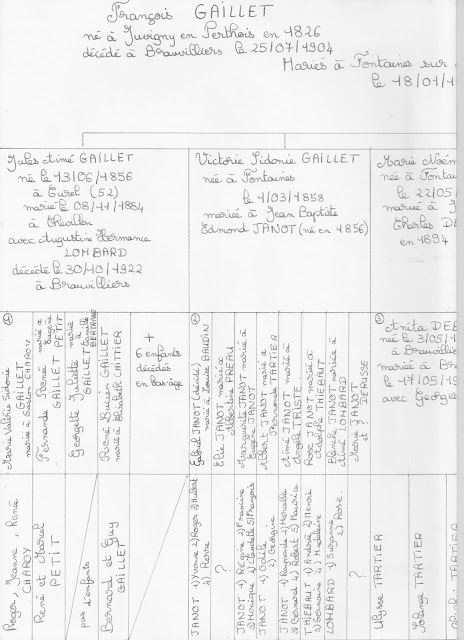 François GAILLET
né à Juvigny en Perthois en 1826
décédé à Brauvilliers le 25/07/1904
Mariés à Fontaines sur
le 18/01/1
Jules Aimé GAILLET
né le 13/06/1856
à Eurel (52)
marié le 08/11/1884
à Chevillon
avec Augustine Hermance
LOMBARD
décédé le 30/10/1922
à Brauvilliers
Victorie Sidonie GAILLET
née à Fontaines
le 1/03/1858
mariée à Jean Baptiste
Edmond JANOT (né en 1856)
Marie Noém
née à Fontai
le 22/05/
mariée à J
Charles DE
en 1894
1
Marie Valérie Sidonie
GAILLET
mariée à Gaston CHAROY
Fernande Renée mariée à
GAILLET Eugène PETIT
Georgette Juliette mariée à
GAILLET Camille
BERTRAND
René Lucien GAILLET
marié à Elisabeth CHITTIER
+
6 enfants
décédés
en bas âge
2
Gabriel JANOT (décédé)
marié à Louise BAUDIN
Elie JANOT marié à
Albertine PREAU
Marguerite JANOT mariée à
?
Eugène JANOT marié à
Albert JANOT marié à
Fernande TARTIER
Aimé JANOT marié à
Angèle TRISTE
Rose JANOT mariée à
Adolphe THIEBAUT
Blanche JANOT mariée à
Aimé LOMBARD
Marie JANOT
et ? DEPUSSE
3
Anita DEB
née le 3/05/1
à Brauvillie
mariée à Br
le 17/05/19
avec Georges
Roger, Jeanne, René
CHAROY
René et Marcel
PETIT
pas d'enfants
Bernard et Guy
GAILLET
JANOT 1) Yvonne 2) Roger 3) Hubert
4) Pierre
?
JANOT 1) Régine 2) Francine
3) Monique 4) Claudette 5) François
JANOT 1) Odile
2) Georgine
JANOT 1) Raymonde 2) Marcelle
3) Bernard 4) Robert 5) Maurice
THIEBAUT 1) André 2) Henri
3) Germaine 4) Madeleine
LOMBARD 1) Suzanne
2) Rose
?
Ulysse TARTIER
Solange TARTIER
TARTIER